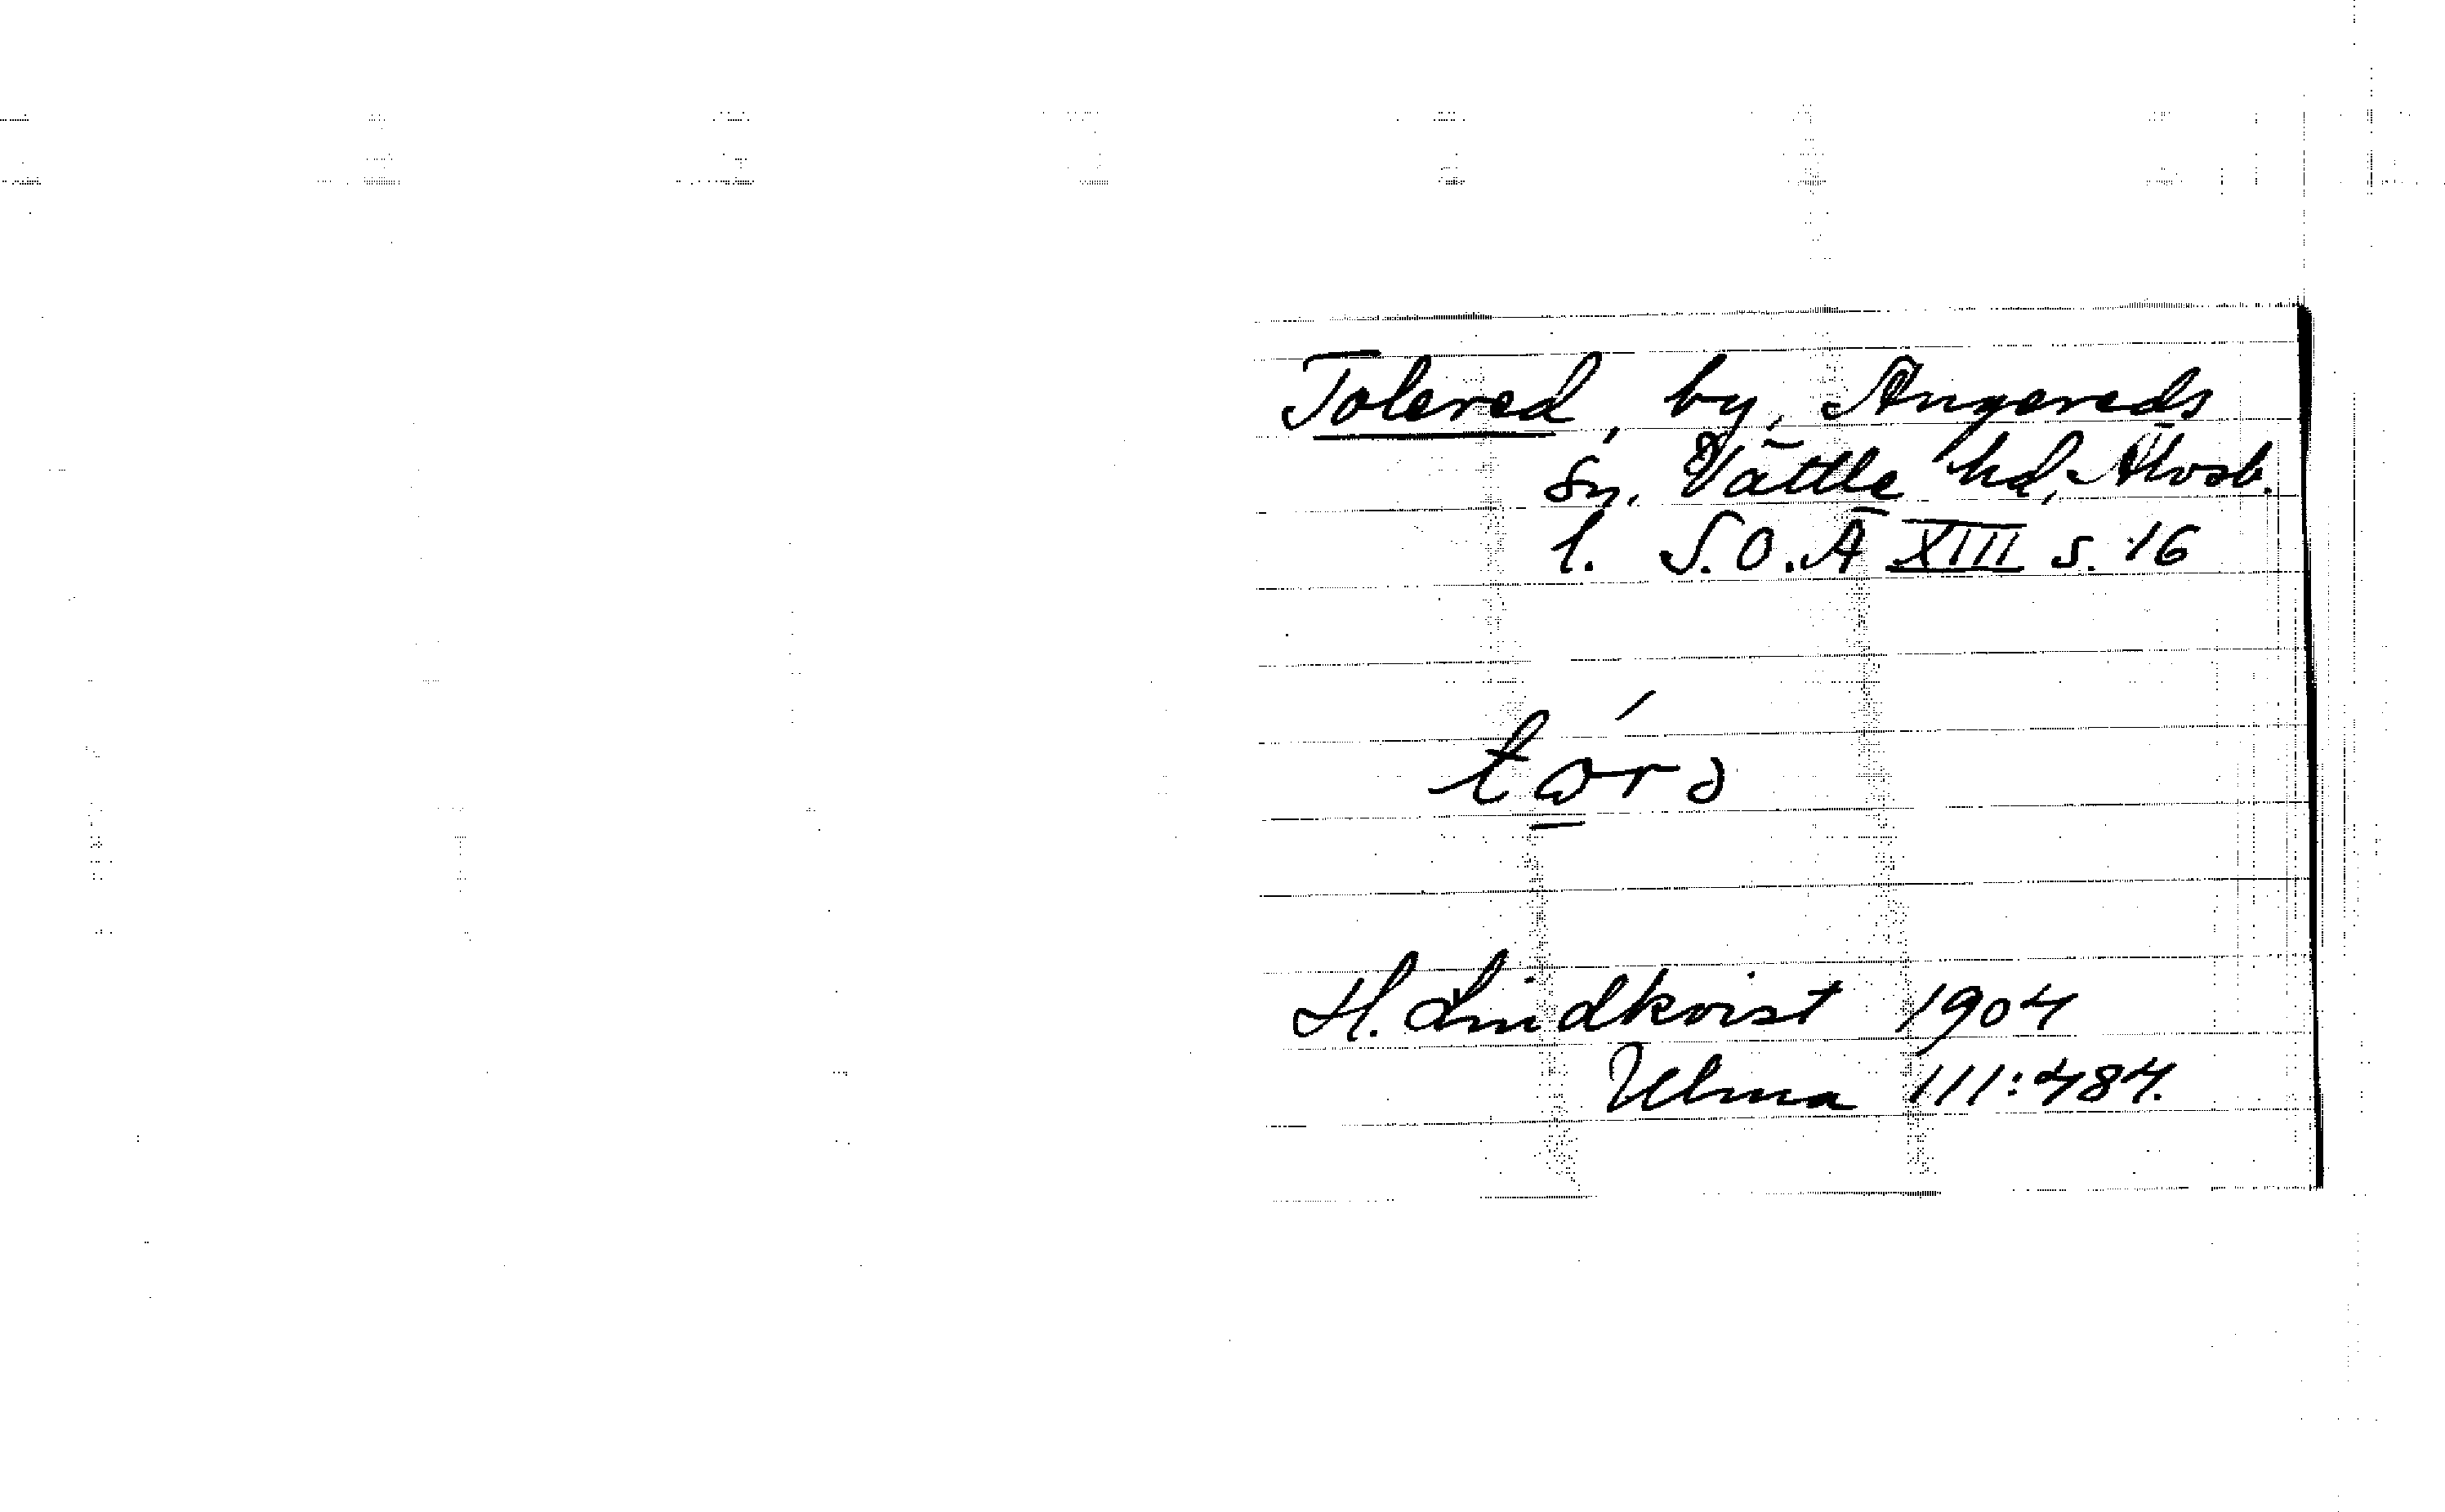 Tolered, by, Angereds
sn, Vättle hd, Älvsb.
l. S.O.Ä XIII s. 16
H. Lindkvist 1904
Ulma 111:484.